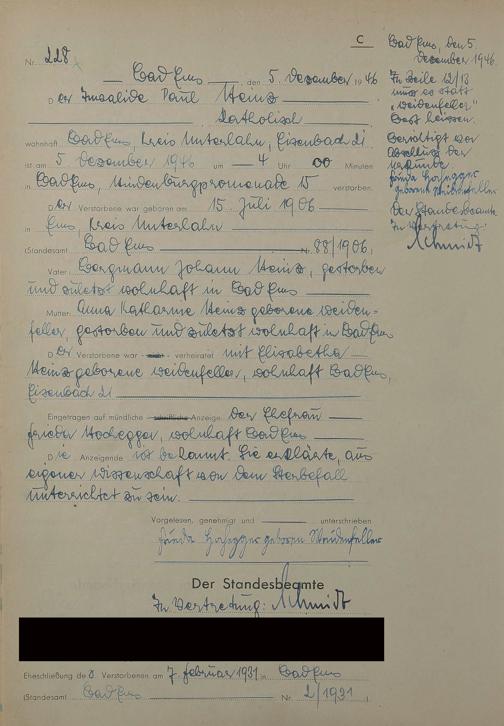 C
Nr. 228
Bad Ems, den 5. Dezember 1946
Der Invalide Paul Heinz
katholisch
wohnhaft Bad Ems, Kreis Unterlahn, Eisenbach 21
ist am 5. Dezember 1946 um 4 Uhr 00 Minuten
in Bad Ems, Hindenburgpromenade 15 verstorben.
Der Verstorbene war geboren am 15. Juli 1906
in Ems, Kreis Unterlahn
(Standesamt Bad Ems Nr. 88/1906)
Vater: Bergmann Johann Heinz, gestorben
und zuletzt wohnhaft in Bad Ems
Mutter: Anna Katharina Heinz geborene Weiden-
feller, gestorben und zuletzt wohnhaft in Bad Ems
Der Verstorbene war - nicht - verheiratet mit Elisabetha
Heinz geborene Weidenfeller, wohnhaft Bad Ems,
Eisenbach 21
Eingetragen auf mündliche - schriftliche - Anzeige der Ehefrau
Frieda Hochegger, wohnhaft Bad Ems
Die Anzeigende ist bekannt. Sie erklärte, aus
eigener Wissenschaft von dem Sterbefall
unterrichtet zu sein.
Vorgelesen, genehmigt und unterschrieben
Frieda geborene Weidenfeller
Der Standesbeamte
In Vertretung: Schmidt
Eheschließung des Verstorbenen am 7. Februar 1931 in Bad Ems
(Standesamt Bad Ems Nr. 2/1931)
Bad Ems, den 5.
Dezember 1946.
In Zeile 12/13
muss es statt
„Weidenfeller"
heissen.
Berichtigt vor
Abschluß der
Urkunde
Frieda
geborene Weidenfeller
Der Standesbeamte
In Vertretung:
Schmidt